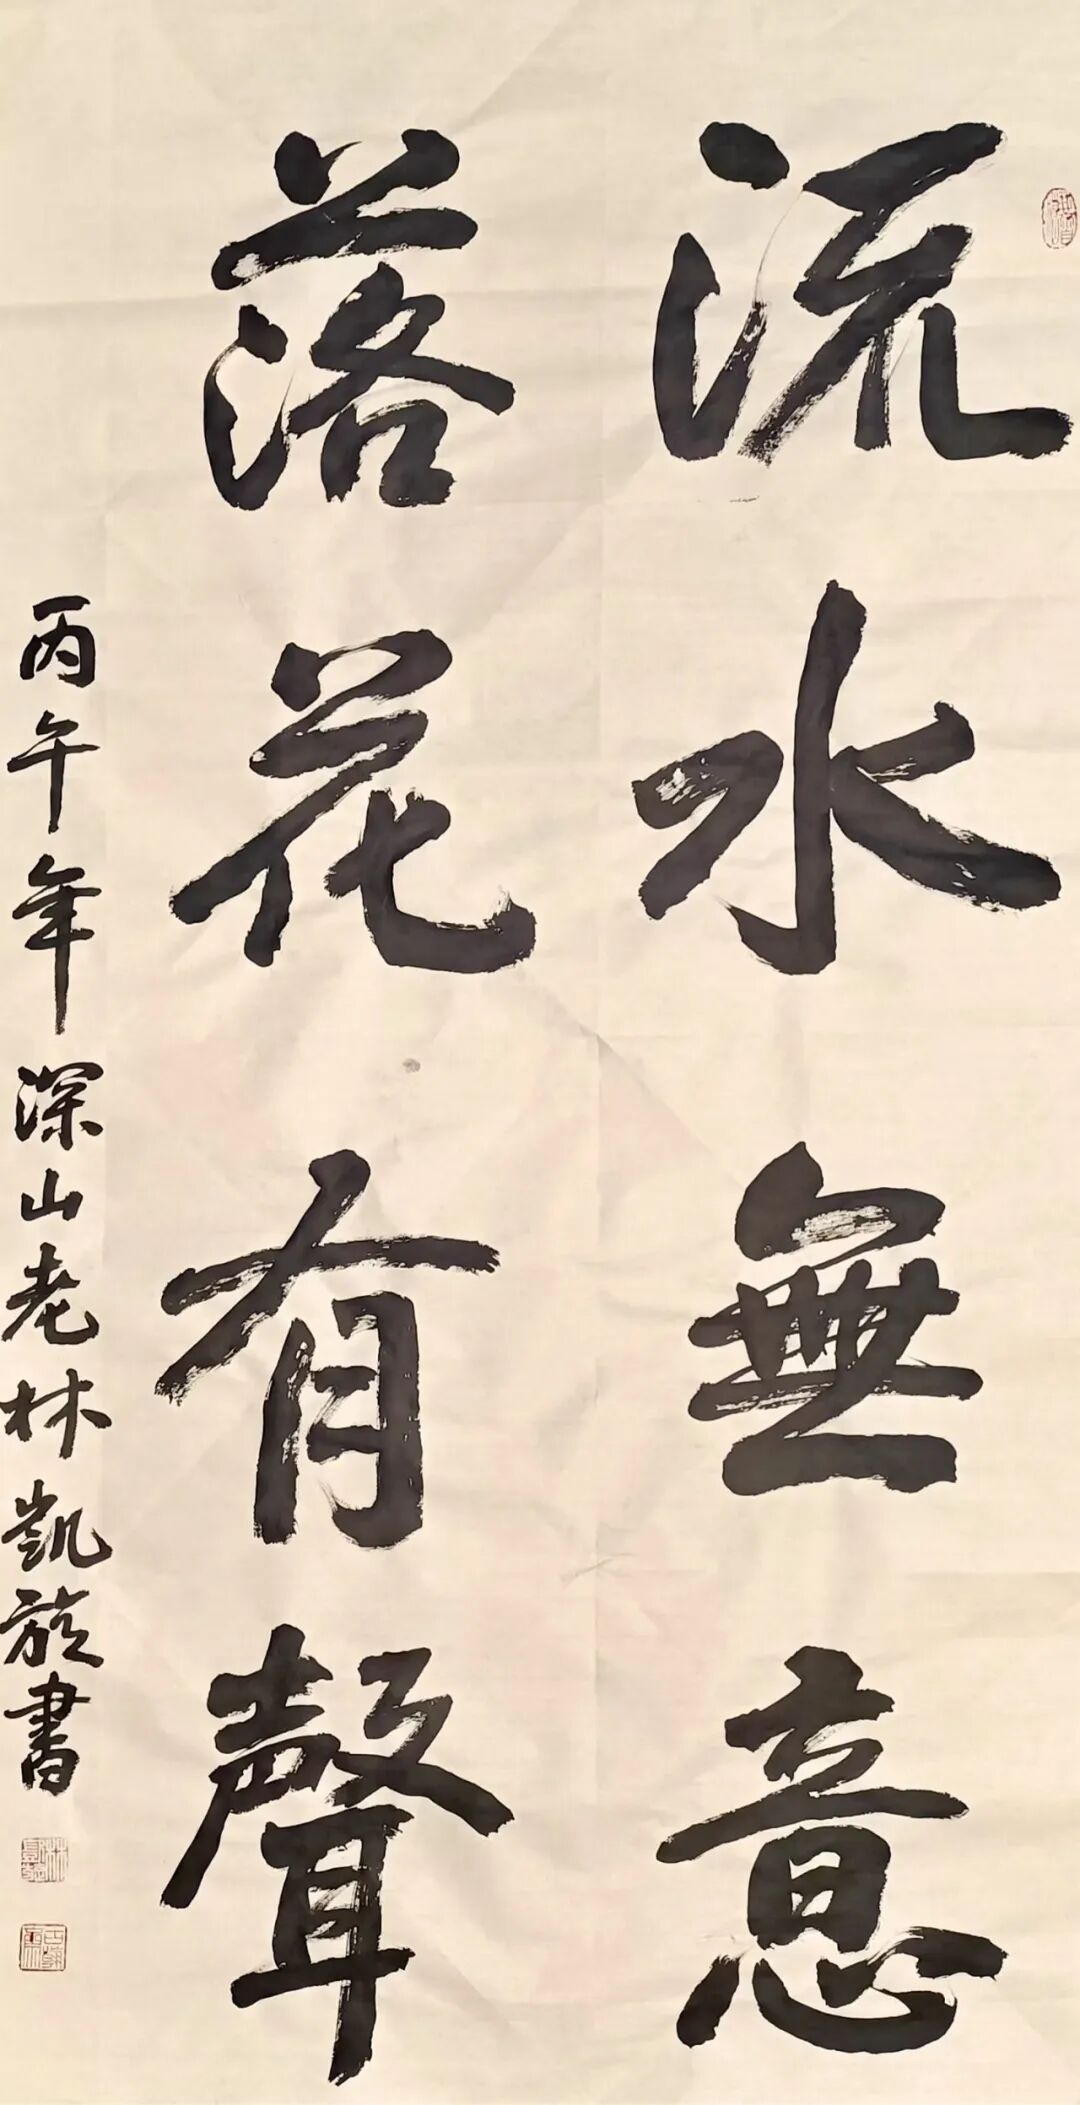 流水無意
落花有聲
丙午年深山老林凱旋書